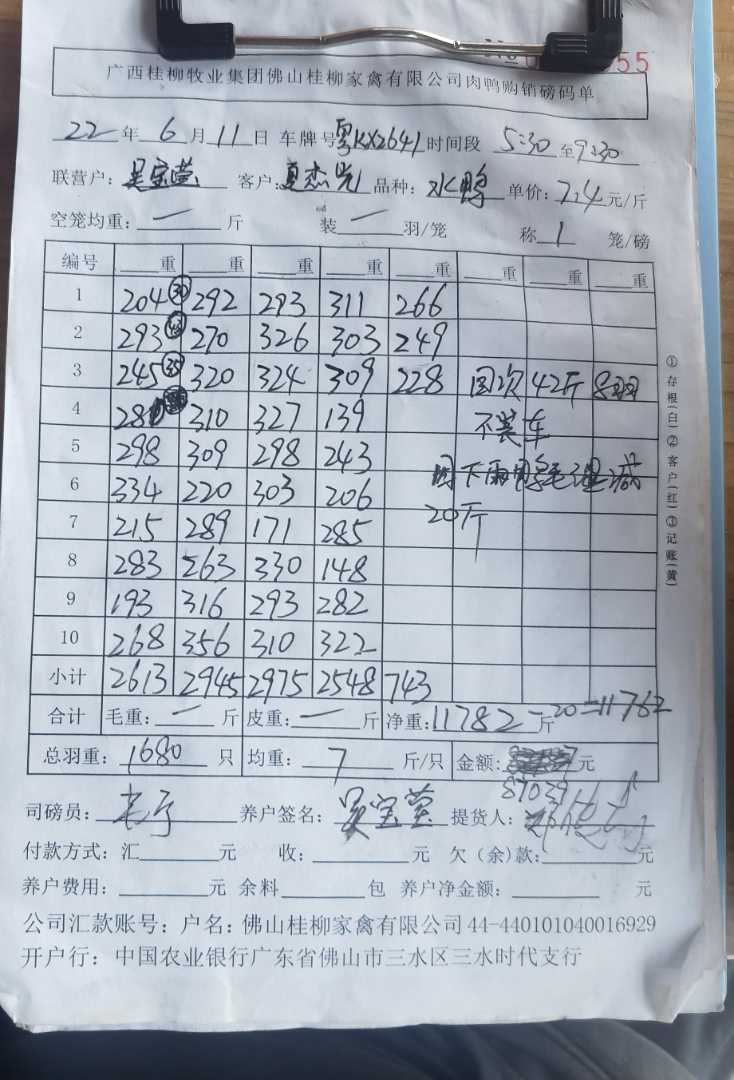 55
广西桂柳牧业集团佛山桂柳家禽有限公司肉鸭购销磅码单
22年6月11日 车牌号粤KX2641时间段 5:30至9:30
联营户:吴宝莹 客户:夏杰 品种:水鸭 单价:7.4元/斤
空笼均重:一斤 装一羽/笼 称1笼/磅
编号 重 重 重 重 重 重 重 重
1 204 30 292 293 311 266
2 293 270 326 303 249
3 245 35 320 324 309 228 回次 42斤 8羽
4 281 310 327 139 不装车
5 298 309 298 243
6 334 220 303 206 因下雨 毛湿减
7 215 289 171 285 20斤
8 283 263 330 148
9 193 316 293 282
10 268 356 310 322
小计 2613 2945 2975 2548 743
合计 毛重:一斤 皮重:一斤 净重:11782斤-20=11762
总羽重:1680只 均重:7斤/只 金额:元
87039
司磅员: 养户签名:吴宝莹 提货人:
付款方式:汇 元 收: 元 欠(余)款: 元
养户费用: 元 余料 包 养户净金额: 元
公司汇款账号:户名:佛山桂柳家禽有限公司44-440101040016929
开户行:中国农业银行广东省佛山市三水区三水时代支行
①存根(白)②客户(红)③记账(黄)